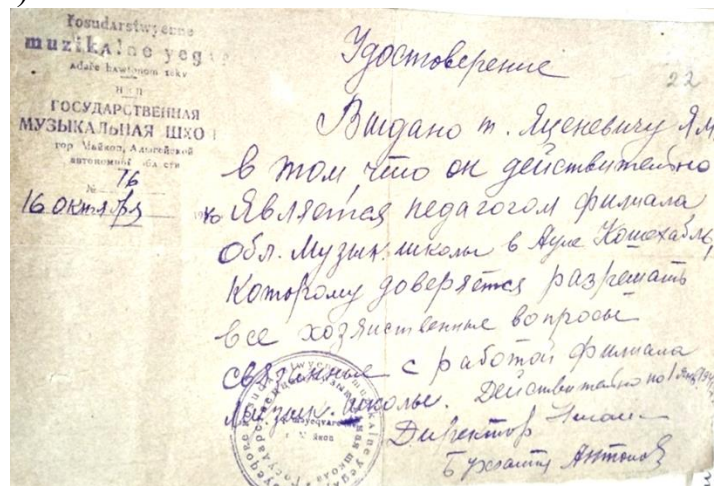 muzikalne
НКП
ГОСУДАРСТВЕННАЯ
МУЗЫКАЛЬНАЯ ШКО
гор Майкоп, Адыгейской
автономной области
№ 76
16 октября
Удостоверение
22
Выдано т. Яценевичу Я.М
в том, что он действительно
является педагогом филиала
Обл. Музык. школы в Ауле Кошехабль,
Которому доверяется разрешать
все хозяиственные вопросы
связанные с работой филиала
Музык. школы. Действительно по 1
Директор
Бухгалтер Антонов